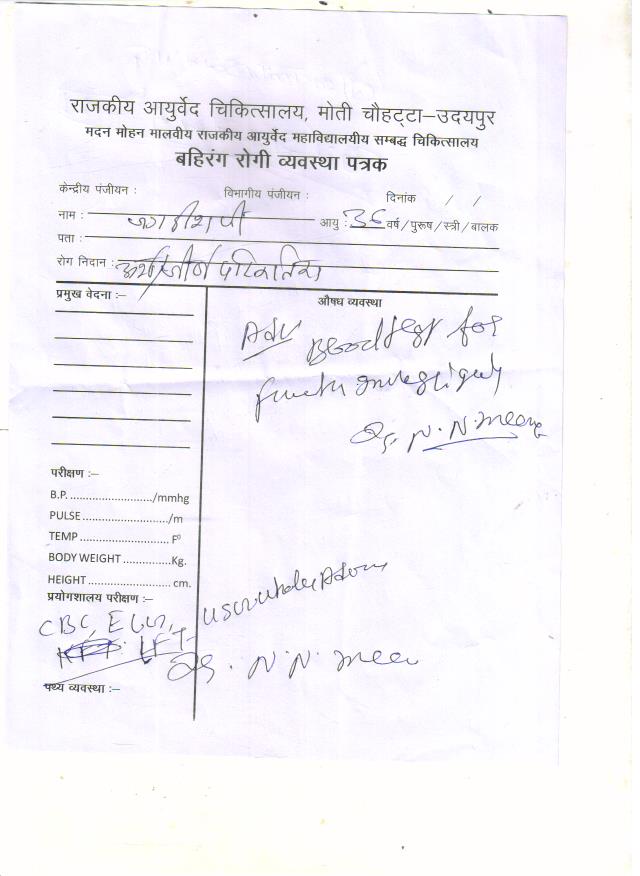 राजकीय आयुर्वेद चिकित्सालय, मोती चौहट्टा–उदयपुर
मदन मोहन मालवीय राजकीय आयुर्वेद महाविद्यालयीय सम्बद्ध चिकित्सालय
बहिरंग रोगी व्यवस्था पत्रक
केन्द्रीय पंजीयन : विभागीय पंजीयन : दिनांक / /
नाम : आयु : 36 वर्ष/पुरूष/स्त्री/बालक
पता :
रोग निदान :
प्रमुख वेदना :–
औषध व्यवस्था
Adv Blood test for
Dr. N. N. Meena
परीक्षण :–
B.P. ........................../mmhg
PULSE ............................/m
TEMP ............................. F⁰
BODY WEIGHT ...............Kg.
HEIGHT ........................... cm.
प्रयोगशालय परीक्षण :–
CBC, ECG, USG whole Abdomen
LFT
Dr. N. N. Mee
पथ्य व्यवस्था :–